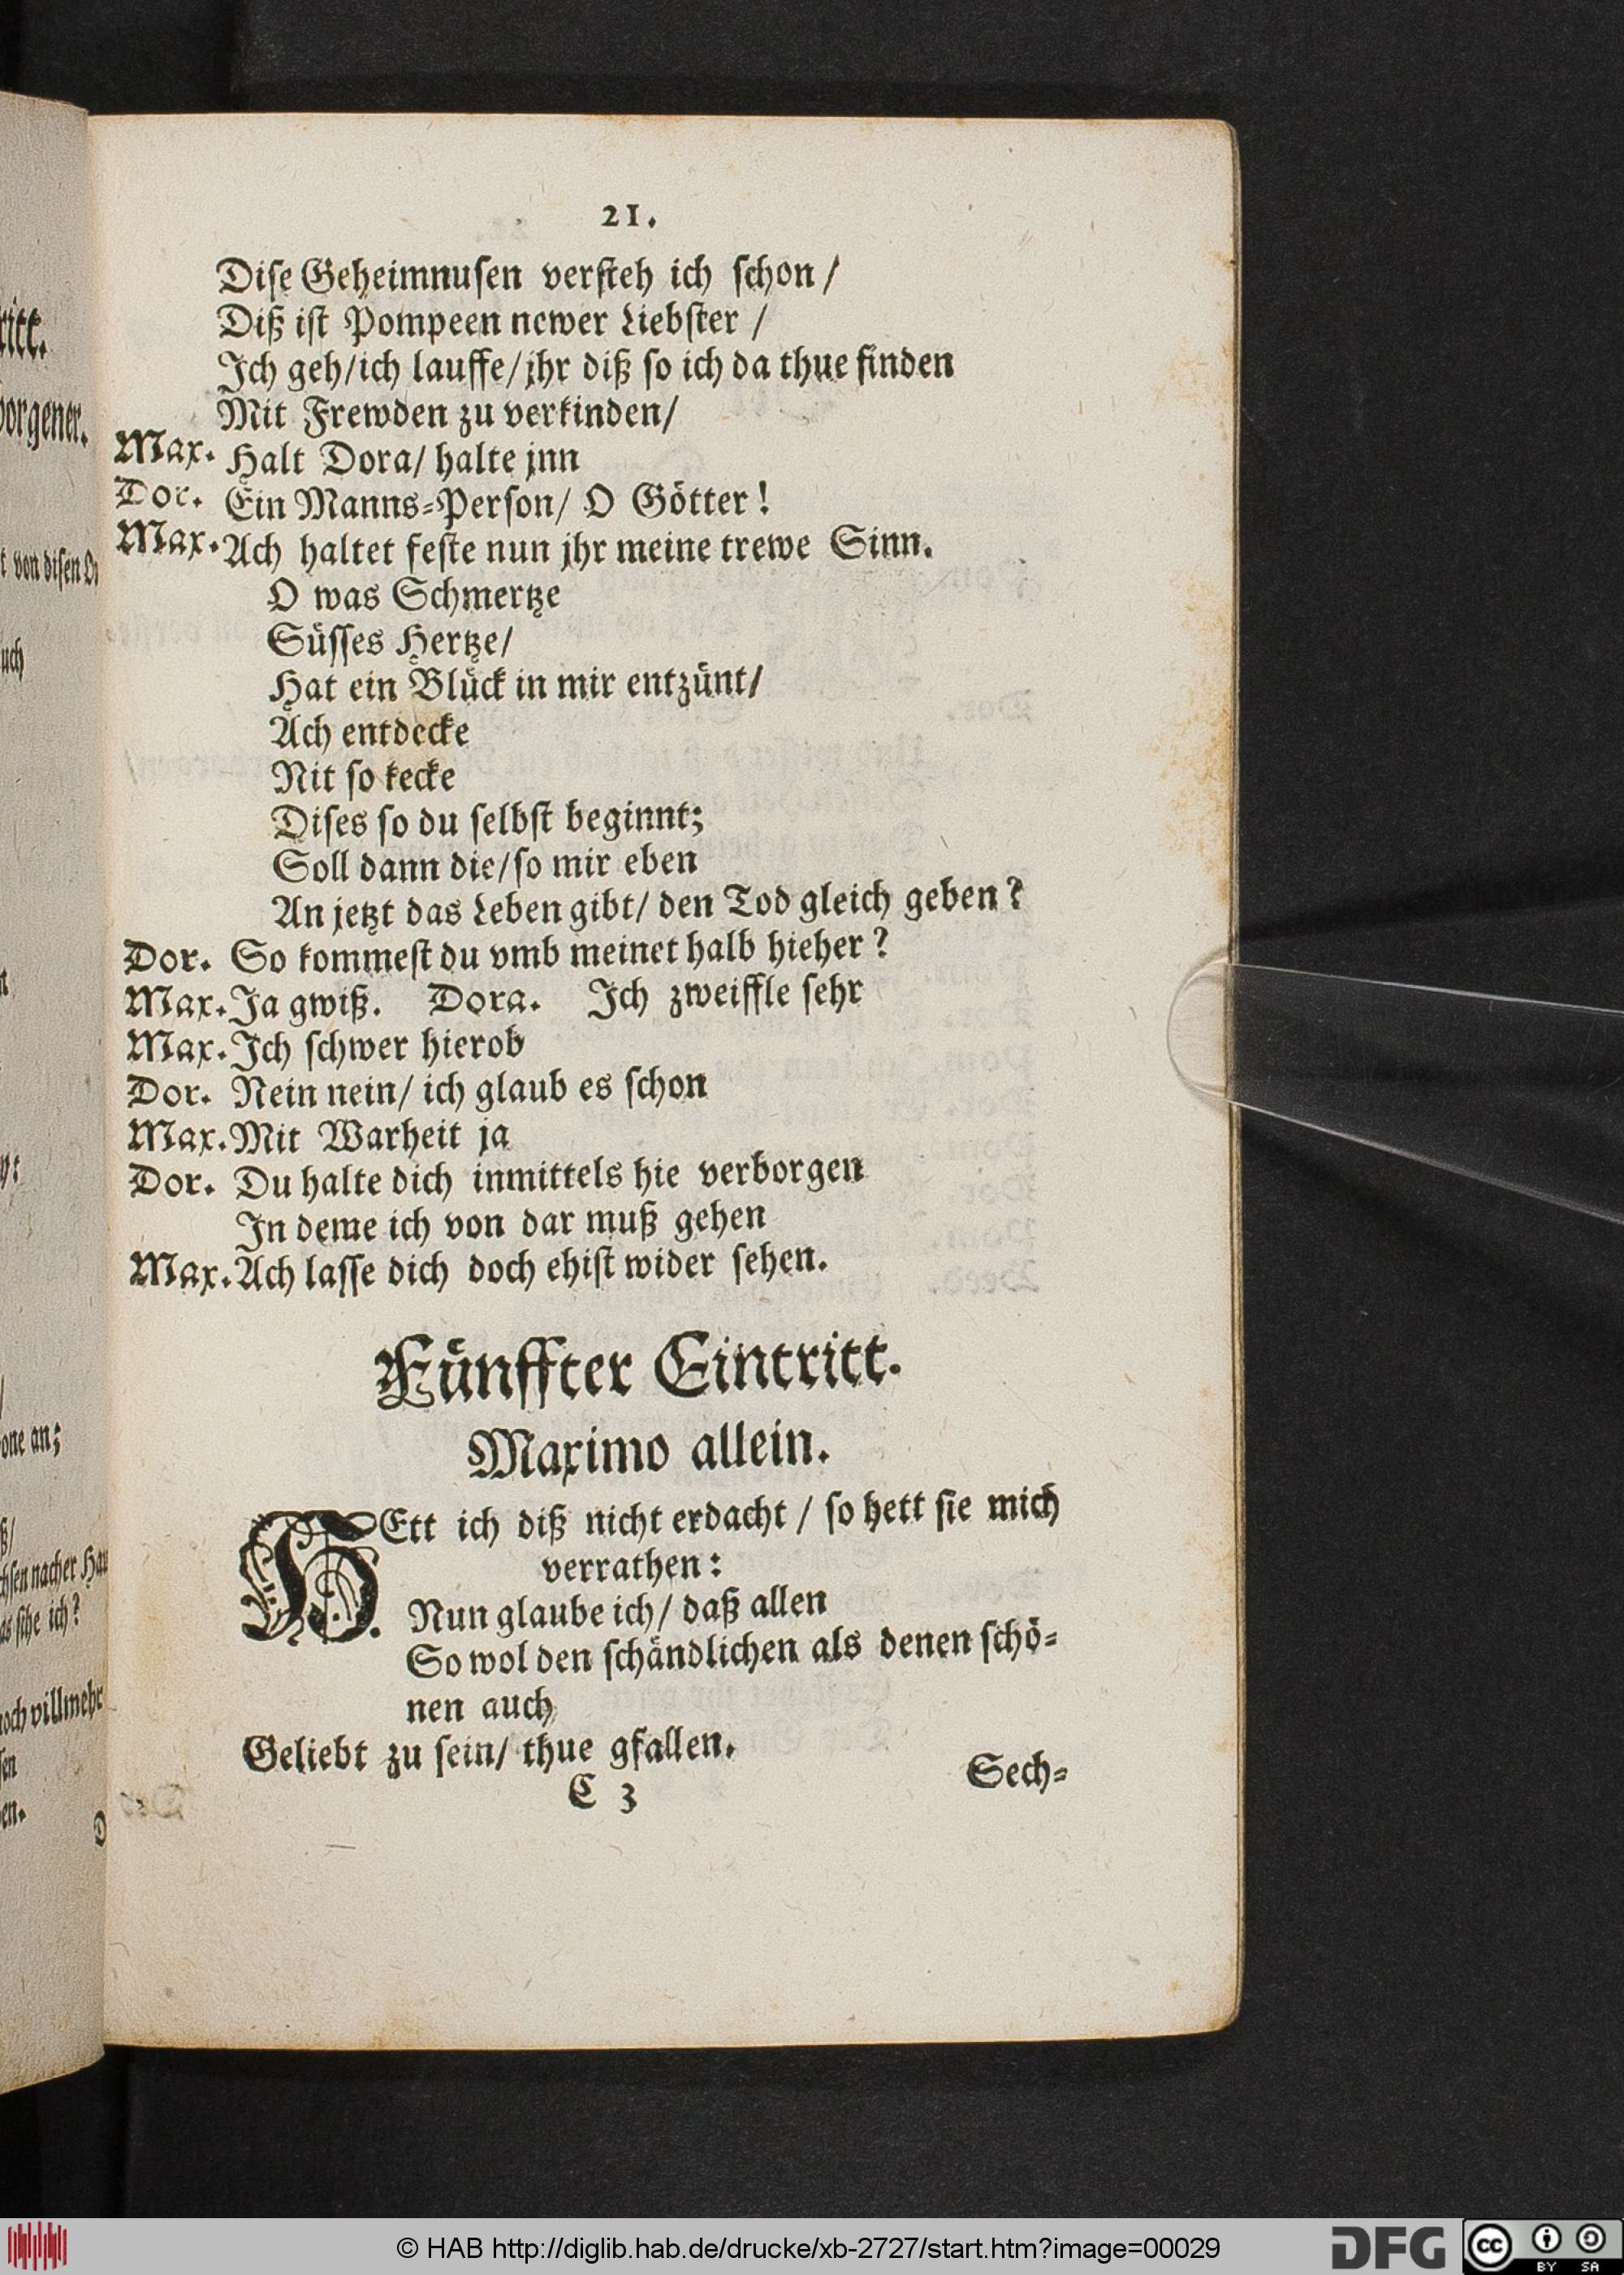 21.
Diſe Geheimnuſen verſteh ich ſchon /
Diß iſt Pompeen newer Liebſter /
Ich geh/ich lauffe/jhr diß ſo ich da thue finden
Mit Frewden zu verkinden/
Max. Halt Dora/ halte jnn
Dor. Ein Manns⸗Perſon/ O Goͤtter!
Max. Ach haltet feſte nun jhr meine trewe Sinn.
O was Schmertze
Suͤſſes Hertze/
Hat ein Bluͤck in mir entzuͤnt/
Ach entdecke
Nit ſo kecke
Diſes ſo du ſelbſt beginnt;
Soll dann die/ſo mir eben
An jetzt das Leben gibt/ den Tod gleich geben?
Dor. So kommeſt du vmb meinet halb hieher?
Max. Ja gwiß. Dora. Ich zweiffle ſehr
Max. Ich ſchwer hierob
Dor. Nein nein/ ich glaub es ſchon
Max. Mit Warheit ja
Dor. Du halte dich inmittels hie verborgen
In deme ich von dar muß gehen
Max. Ach laſſe dich doch ehiſt wider ſehen.
Fuͤnffter Eintritt.
Maximo allein.
HEtt ich diß nicht erdacht / ſo hett ſie mich
verrathen:
Nun glaube ich/ daß allen
So wol den ſchaͤndlichen als denen ſchoͤ⸗
nen auch
Geliebt zu ſein/ thue gfallen.
C 3
Sech⸗
© HAB http://diglib.hab.de/drucke/xb-2727/start.htm?image=00029
DFG
cc
BY SA